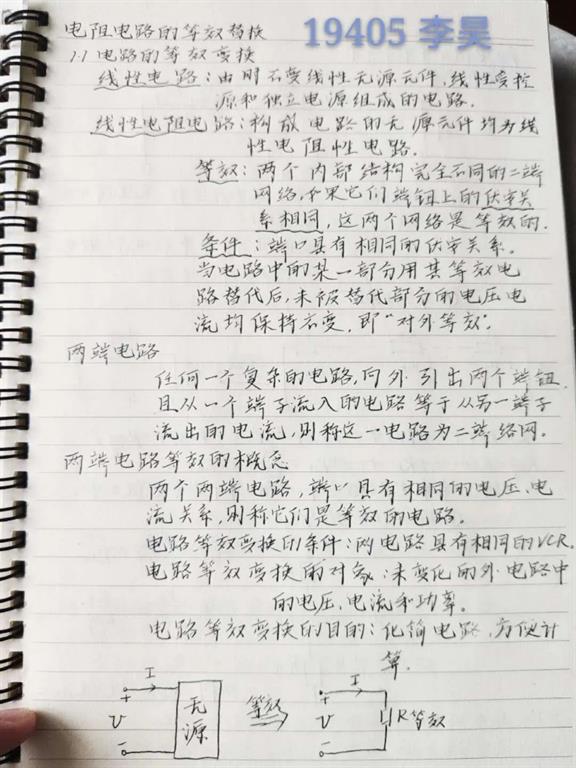 电阻电路的等效替换
19405 李昊
1.1 电路的等效变换
线性电路：由时不变线性无源元件，线性受控
源和独立电源组成的电路.
线性电阻电路：构成电路的无源元件均为线
性电阻性电路.
等效：两个内部结构完全不同的二端
网络，如果它们端钮上的伏安关
系相同，这两个网络是等效的.
条件：端口具有相同的伏安关系.
当电路中的某一部分用其等效电
路替代后，未被替代部分的电压电
流均保持不变，即“对外等效”.
两端电路
任何一个复杂的电路，向外引出两个端钮.
且从一个端子流入的电路等于从另一端子
流出的电流，则称这一电路为二端络网.
两端电路等效的概念
两个两端电路，端口具有相同的电压、电
流关系，则称它们是等效的电路.
电路等效变换的条件：两电路具有相同的VCR.
电路等效变换的对象：未变化的外电路中
的电压、电流和功率.
电路等效变换的目的：化简电路，方便计
算.
I
+
U
-
无
源
等效
I
+
U
-
R等效